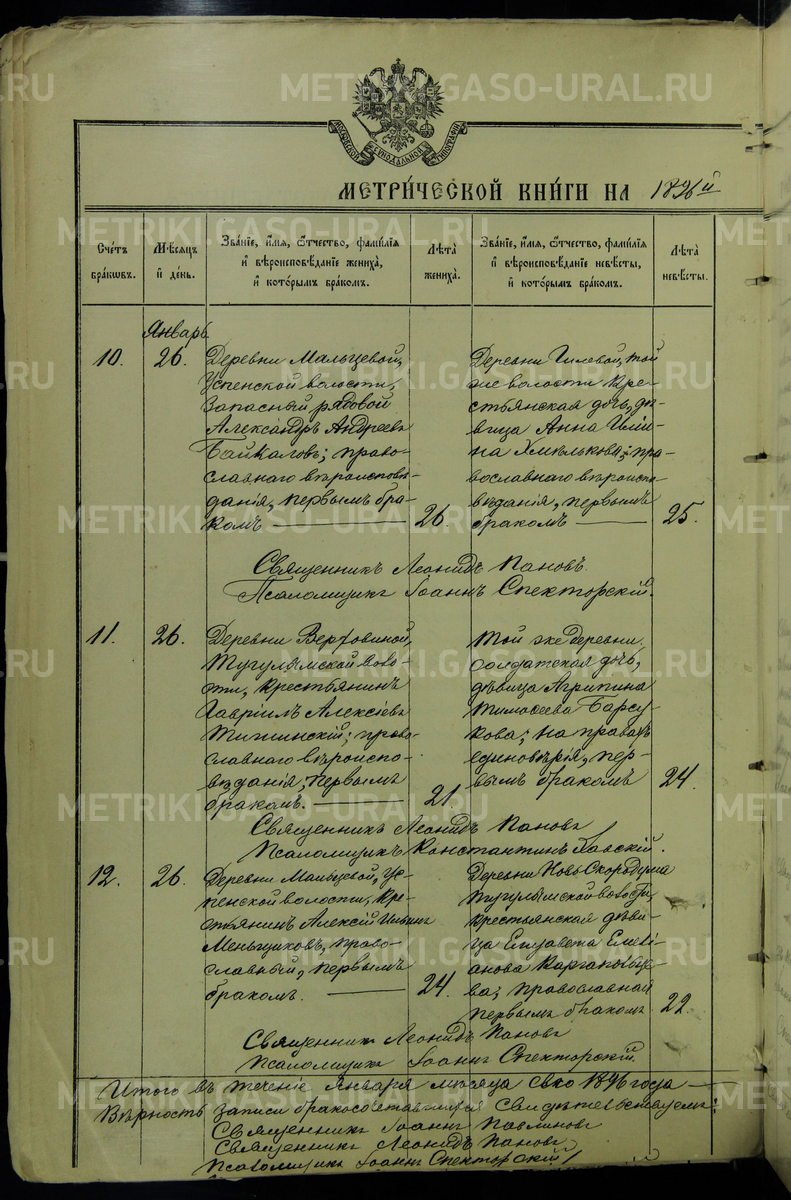 METRIKI.GASO-URAL.RU
МОСКОВСКОЙ СѴНОДАЛЬНОЙ ТИПОГРАФІИ
МЕТРИ́ЧЕСКОЙ КНИ́ГИ НА 1896й
Сче́тъ бра́кωвъ.
Мѣ́сяцъ и҆ де́нь.
Зва́нїе, и҆́мя, ѻ҆́тчество, фамилїя и҆ вѣроисповѣ́данїе жениха̀, и҆ кото́рымъ бра́комъ.
Лѣ̑та жениха̀.
Зва́нїе, и҆́мя, ѻ҆́тчество, фамилїя и҆ вѣроисповѣ́данїе невѣ́сты, и҆ кото́рымъ бра́комъ.
Лѣ̑та невѣ́сты.
Январь
10.
26.
Деревни Мальцевой,
Успенской волости,
Запасный рядовой
Александръ Андреевъ
Байкаловъ; право-
славнаго вѣроисповѣ-
данія, первымъ бра-
комъ
26.
Деревни Гилевой, той
же волости кре-
стьянская дочь, дѣ-
вица Анна Ильи-
на Хмѣлькова; пра-
вославнаго вѣроиспо-
вѣданія, первымъ
бракомъ
25.
Священникъ Леонидъ Пановъ.
Псаломщикъ Іоаннъ Спекторскій.
11.
26.
Деревни Верховиной,
Тугулымской воло-
сти, крестьянинъ
Гавріилъ Алексіевъ
Тишинскій; право-
славнаго вѣроиспо-
вѣданія, первымъ
бракомъ.
21.
Той же деревни
солдатская дочь,
дѣвица Агрипина
Тимофеева Барсу-
кова; на правахъ
единовѣрія, пер-
вымъ бракомъ
24.
Священникъ Леонидъ Пановъ
Псаломщикъ Константинъ Хавскій.
12.
26.
Деревни Мальцевой, Ус-
пенской волости, кре-
стьянинъ Алексій Ильинъ
Меньщиковъ, право-
славный, первымъ
бракомъ.
24.
Деревни Новъ-Скородума
Тугулымской волости,
крестьянская дѣви-
ца Елизавета Емелі-
анова Каргаполье-
ва; православная
первымъ бракомъ
22.
Священникъ Леонидъ Пановъ
Псаломщикъ Іоаннъ Спекторскій.
Итого въ теченіе Января мѣсяца сего 1896 года
Вѣрность записи бракосочетавшихся свидѣтельствуемъ:
Священникъ Іоаннъ Павлиновъ
Священникъ Леонидъ Пановъ
Псаломщикъ Іоаннъ Спекторскій